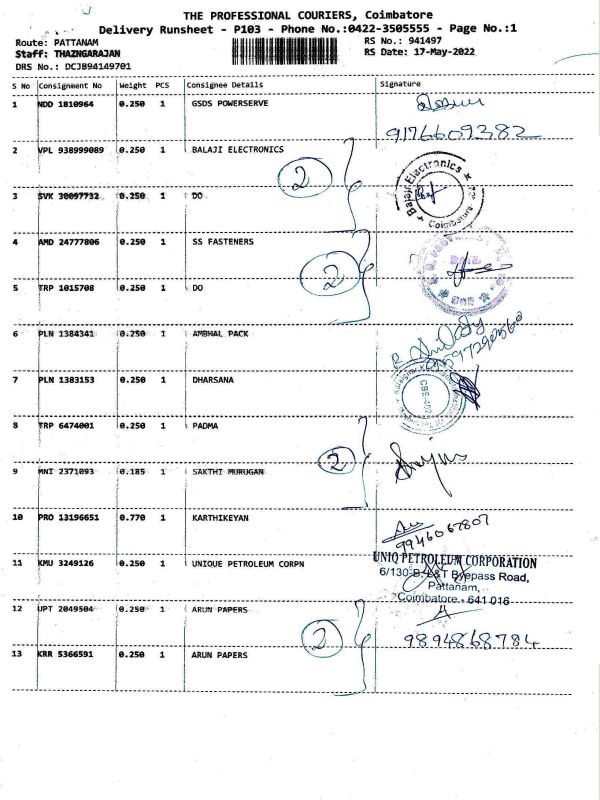 THE PROFESSIONAL COURIERS, Coimbatore
Delivery Runsheet - P103 - Phone No.:0422-3505555 - Page No.:1
Route: PATTANAM RS No.: 941497
Staff: THAZNGARAJAN RS Date: 17-May-2022
DRS No.: DCJB94149701
S No Consignment No Weight PCS Consignee Details Signature
1 NDD 1810964 0.250 1 GSDS POWERSERVE
9176609382
2 VPL 938999089 0.250 1 BALAJI ELECTRONICS
2
Balaji Electronics
Coimbatore
3 SVK 30097732 0.250 1 DO
4 AMD 24777806 0.250 1 SS FASTENERS
2
5 TRP 1015708 0.250 1 DO
6 PLN 1384341 0.250 1 AMBHAL PACK
7 PLN 1383153 0.250 1 DHARSANA
8 TRP 6474001 0.250 1 PADMA
2
9 MNI 2371093 0.185 1 SAKTHI MURUGAN
10 PRO 13196651 0.770 1 KARTHIKEYAN
9946067807
11 KMU 3249126 0.250 1 UNIQUE PETROLEUM CORPN
UNIQ PETROLEUM CORPORATION
6/130-B, L&T Byepass Road,
Pattanam,
Coimbatore - 641 016
12 UPT 2049504 0.250 1 ARUN PAPERS
2
9894868784
13 KRR 5366591 0.250 1 ARUN PAPERS